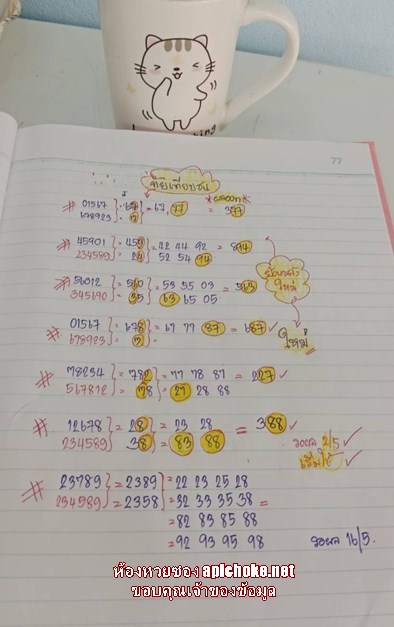 77
# 01567 } = 67, 77 = 377
678923
# 45901 } = 450 } = 42 44 92 = 894
234589 } = 24 } 52 54 94
# 56012 } = 560 } = 53 55 03 = 563
345690 } = 35 } 63 65 05
ใหม่
# 01567 } = 678 } = 67 77 87 = 687 ✓
678923 } =
# 78234 } = 782 } = 77 78 87 = 227 ✓
567812 } = 78 } = 27 28 88
# 12678 } = 28 } = 23 28 = 388 ✓
234589 } = 38 } = 83 88
2/5 ✓
# 23789 } = 2389 } = 22 23 25 28
234589 } = 2358 } = 32 33 35 38 =
= 82 83 85 88
= 92 93 95 98
16/5.
ห้องหวยซอง aplchoke.net
ขอบคุณเจ้าของข้อมูล